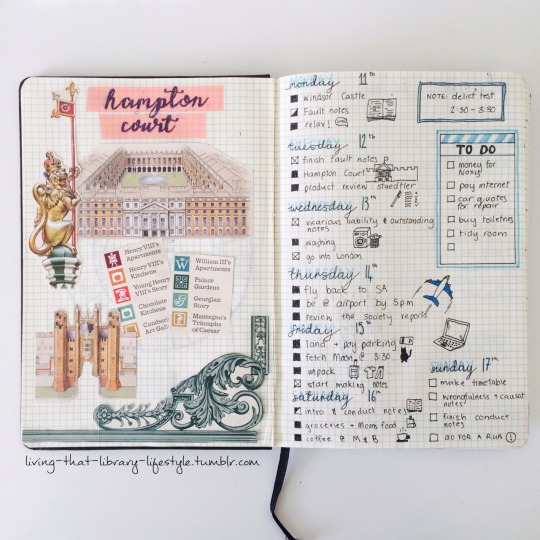 hampton
court
Henry VIII's
Apartments
Henry VIII's
Kitchens
Young Henry
VIII's Story
Chocolate
Kitchens
Cumberl
Art Gall
William III's
Apartments
Palace
Gardens
Georgian
Story
Mantegna's
Triumphs
of Caesar
living-that-library-lifestyle.tumblr.com
monday 11th
Windsor Castle
Fault notes
relax!
tuesday 12th
finish Fault notes
Hampton Court
product review: staedtler
wednesday 13th
vicarious liability & outstanding
notes
washing
go into London
thursday 14th
fly back to SA
be @ airport by 5pm
review the society reports
friday 15th
land + pay parking
fetch Mom @ 3:30
unpack
start making notes
saturday 16th
intro & conduct notes
groceries + Moms food
coffee @ M & B
NOTE: delict test
2:30 - 3:30
TO DO
money for
Noxy!
pay internet
car quotes
for repair
buy toiletries
tidy room
sunday 17th
make timetable
wrongfulness + causat
notes?
finish conduct
notes
GO FOR A RUN !